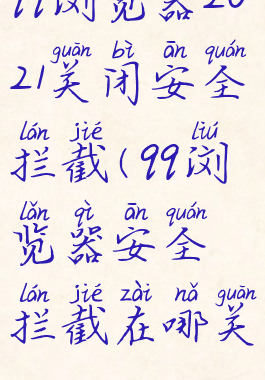 11浏览器20
guān bì ān quán
21关闭安全
lán jié liú
拦截(99浏
lǎn qì ān quán
览器安全
lán jié zài nǎ guān
拦截在哪关